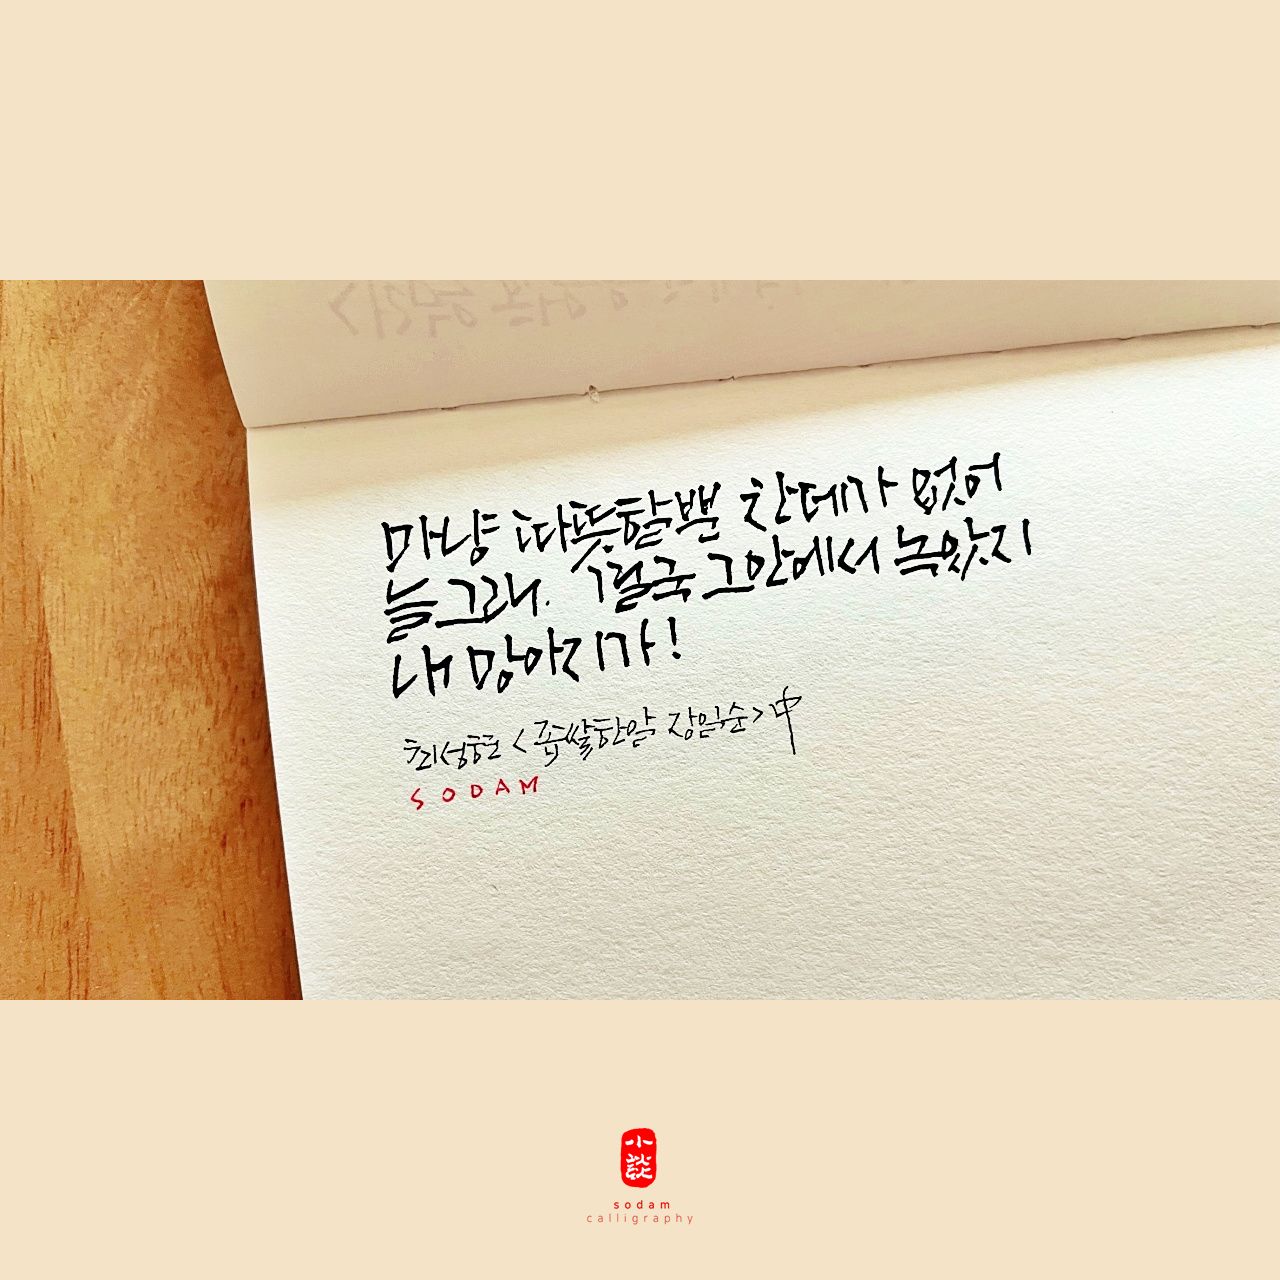 마냥 따뜻할뿐 찬데가 없어
늘 그래. 결국 그안에서 녹았지
내 망아리가!
최성현 <좁쌀한알 장일순> 中
SODAM
小談
sodam
calligraphy